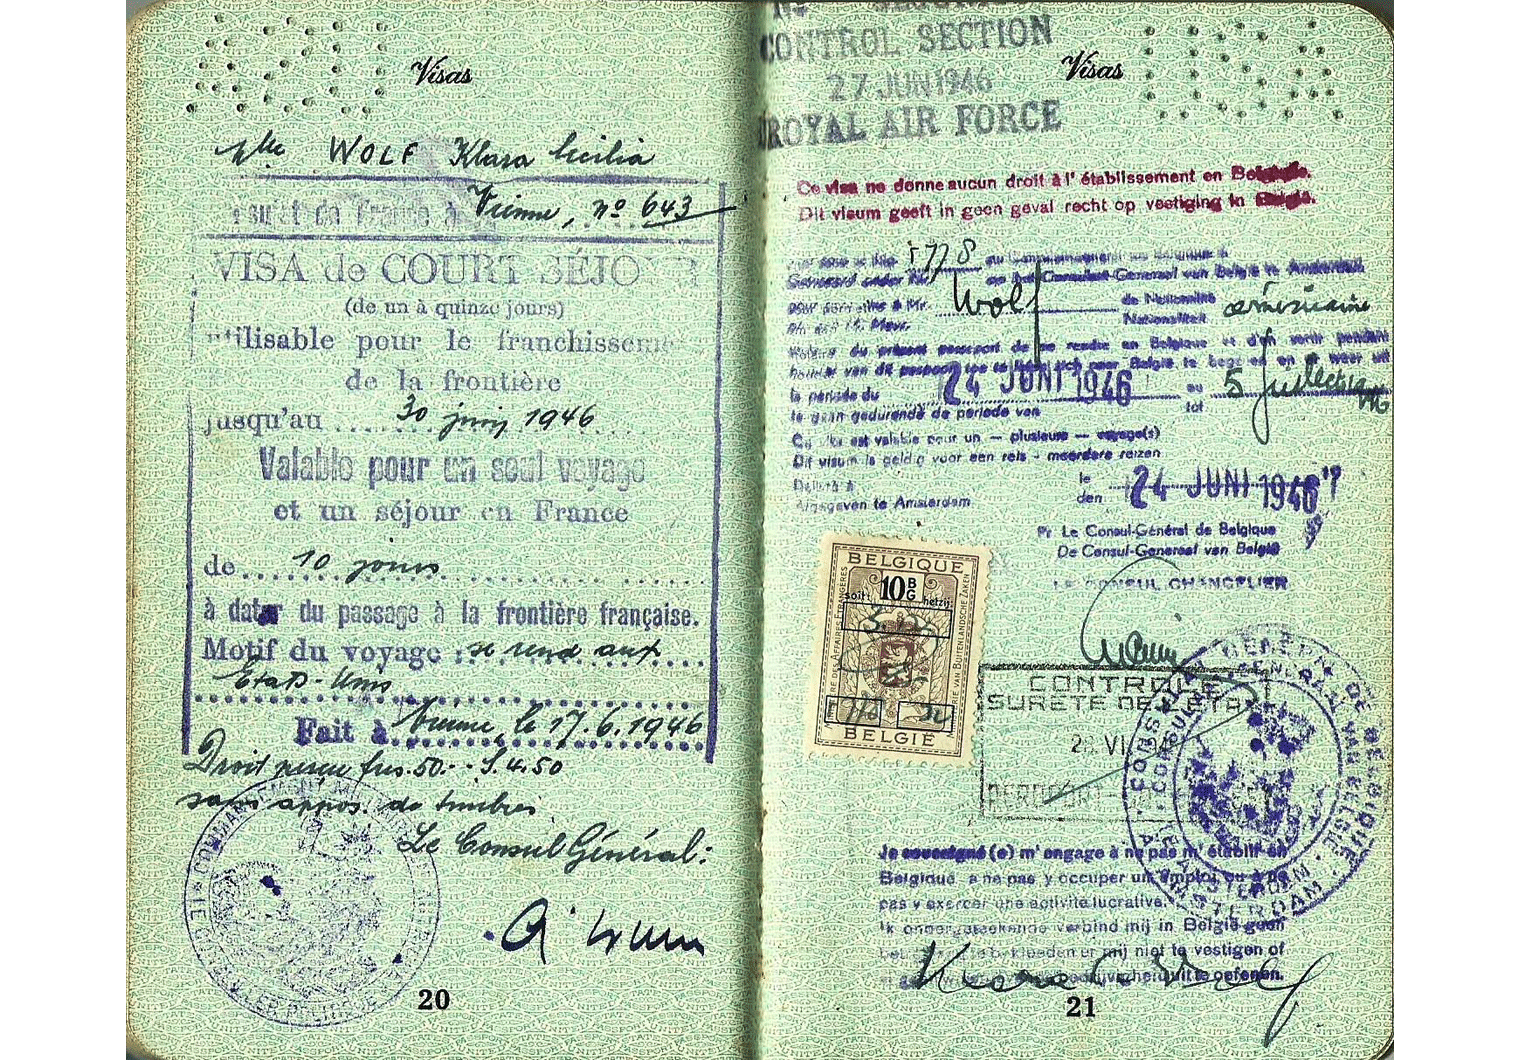 Visas
Mlle WOLF Klara Cecilia
de France à Vienne, nº 643
VISA de COURT SÉJOUR
(de un à quinze jours)
utilisable pour le franchisseme
de la frontière
jusqu'au 30 juin 1946
Valable pour un seul voyage
et un séjour en France
de 10 jours
à dater du passage à la frontière française.
Motif du voyage : se rend aux
États-Unis
Fait à Vienne, le 17.6.1946
Droit perçu frs. 50.- - S. 4.50
sans appos. de timbres.
Le Consul Général:
20
CONTROL SECTION
27 JUN 1946
ROYAL AIR FORCE
Visas
USA
Ce visa ne donne aucun droit à l'établissement en Belgique.
Dit visum geeft in geen geval recht op vestiging in België.
au Consulat-Général de Belgique à
het Consulaat-Generaal van België te Amsterdam
Wolf
de Nationalité américaine
Nationaliteit
du présent passeport de se rendre en Belgique et d'en sortir pendant
houder van dit paspoort toe te zich naar België te begeven en weer uit
la période du 24 JUNI 1946 au 5 juillet
te gaan gedurende de periode van tot
Ce visa est valable pour un — plusieurs — voyage(s)
Dit visum is geldig voor een reis - meerdere reizen
Délivré à le
Afgegeven te Amsterdam den 24 JUNI 1946
Pr Le Consul-Général de Belgique
De Consul-Generaal van België
LE CONSUL CHANCELIER
BELGIQUE
10 B G
soit: hetzij:
BELGIË
CONTROLE
SURETE DE L'ETAT
AEROPORT
CONSULAT GENERAL DE BELGIQUE
CONSULAAT GENERAAL VAN BELGIE
AMSTERDAM
Je soussigné(e) m'engage à ne pas m'établir en
Belgique, à ne pas y occuper un emploi ou à ne
pas y exercer une activité lucrative.
Ik ondergeteekende verbind mij in België geen
bekleeden er mij niet te vestigen of
bedrijvigheid uit te oefenen.
Klara C. Wolf
21